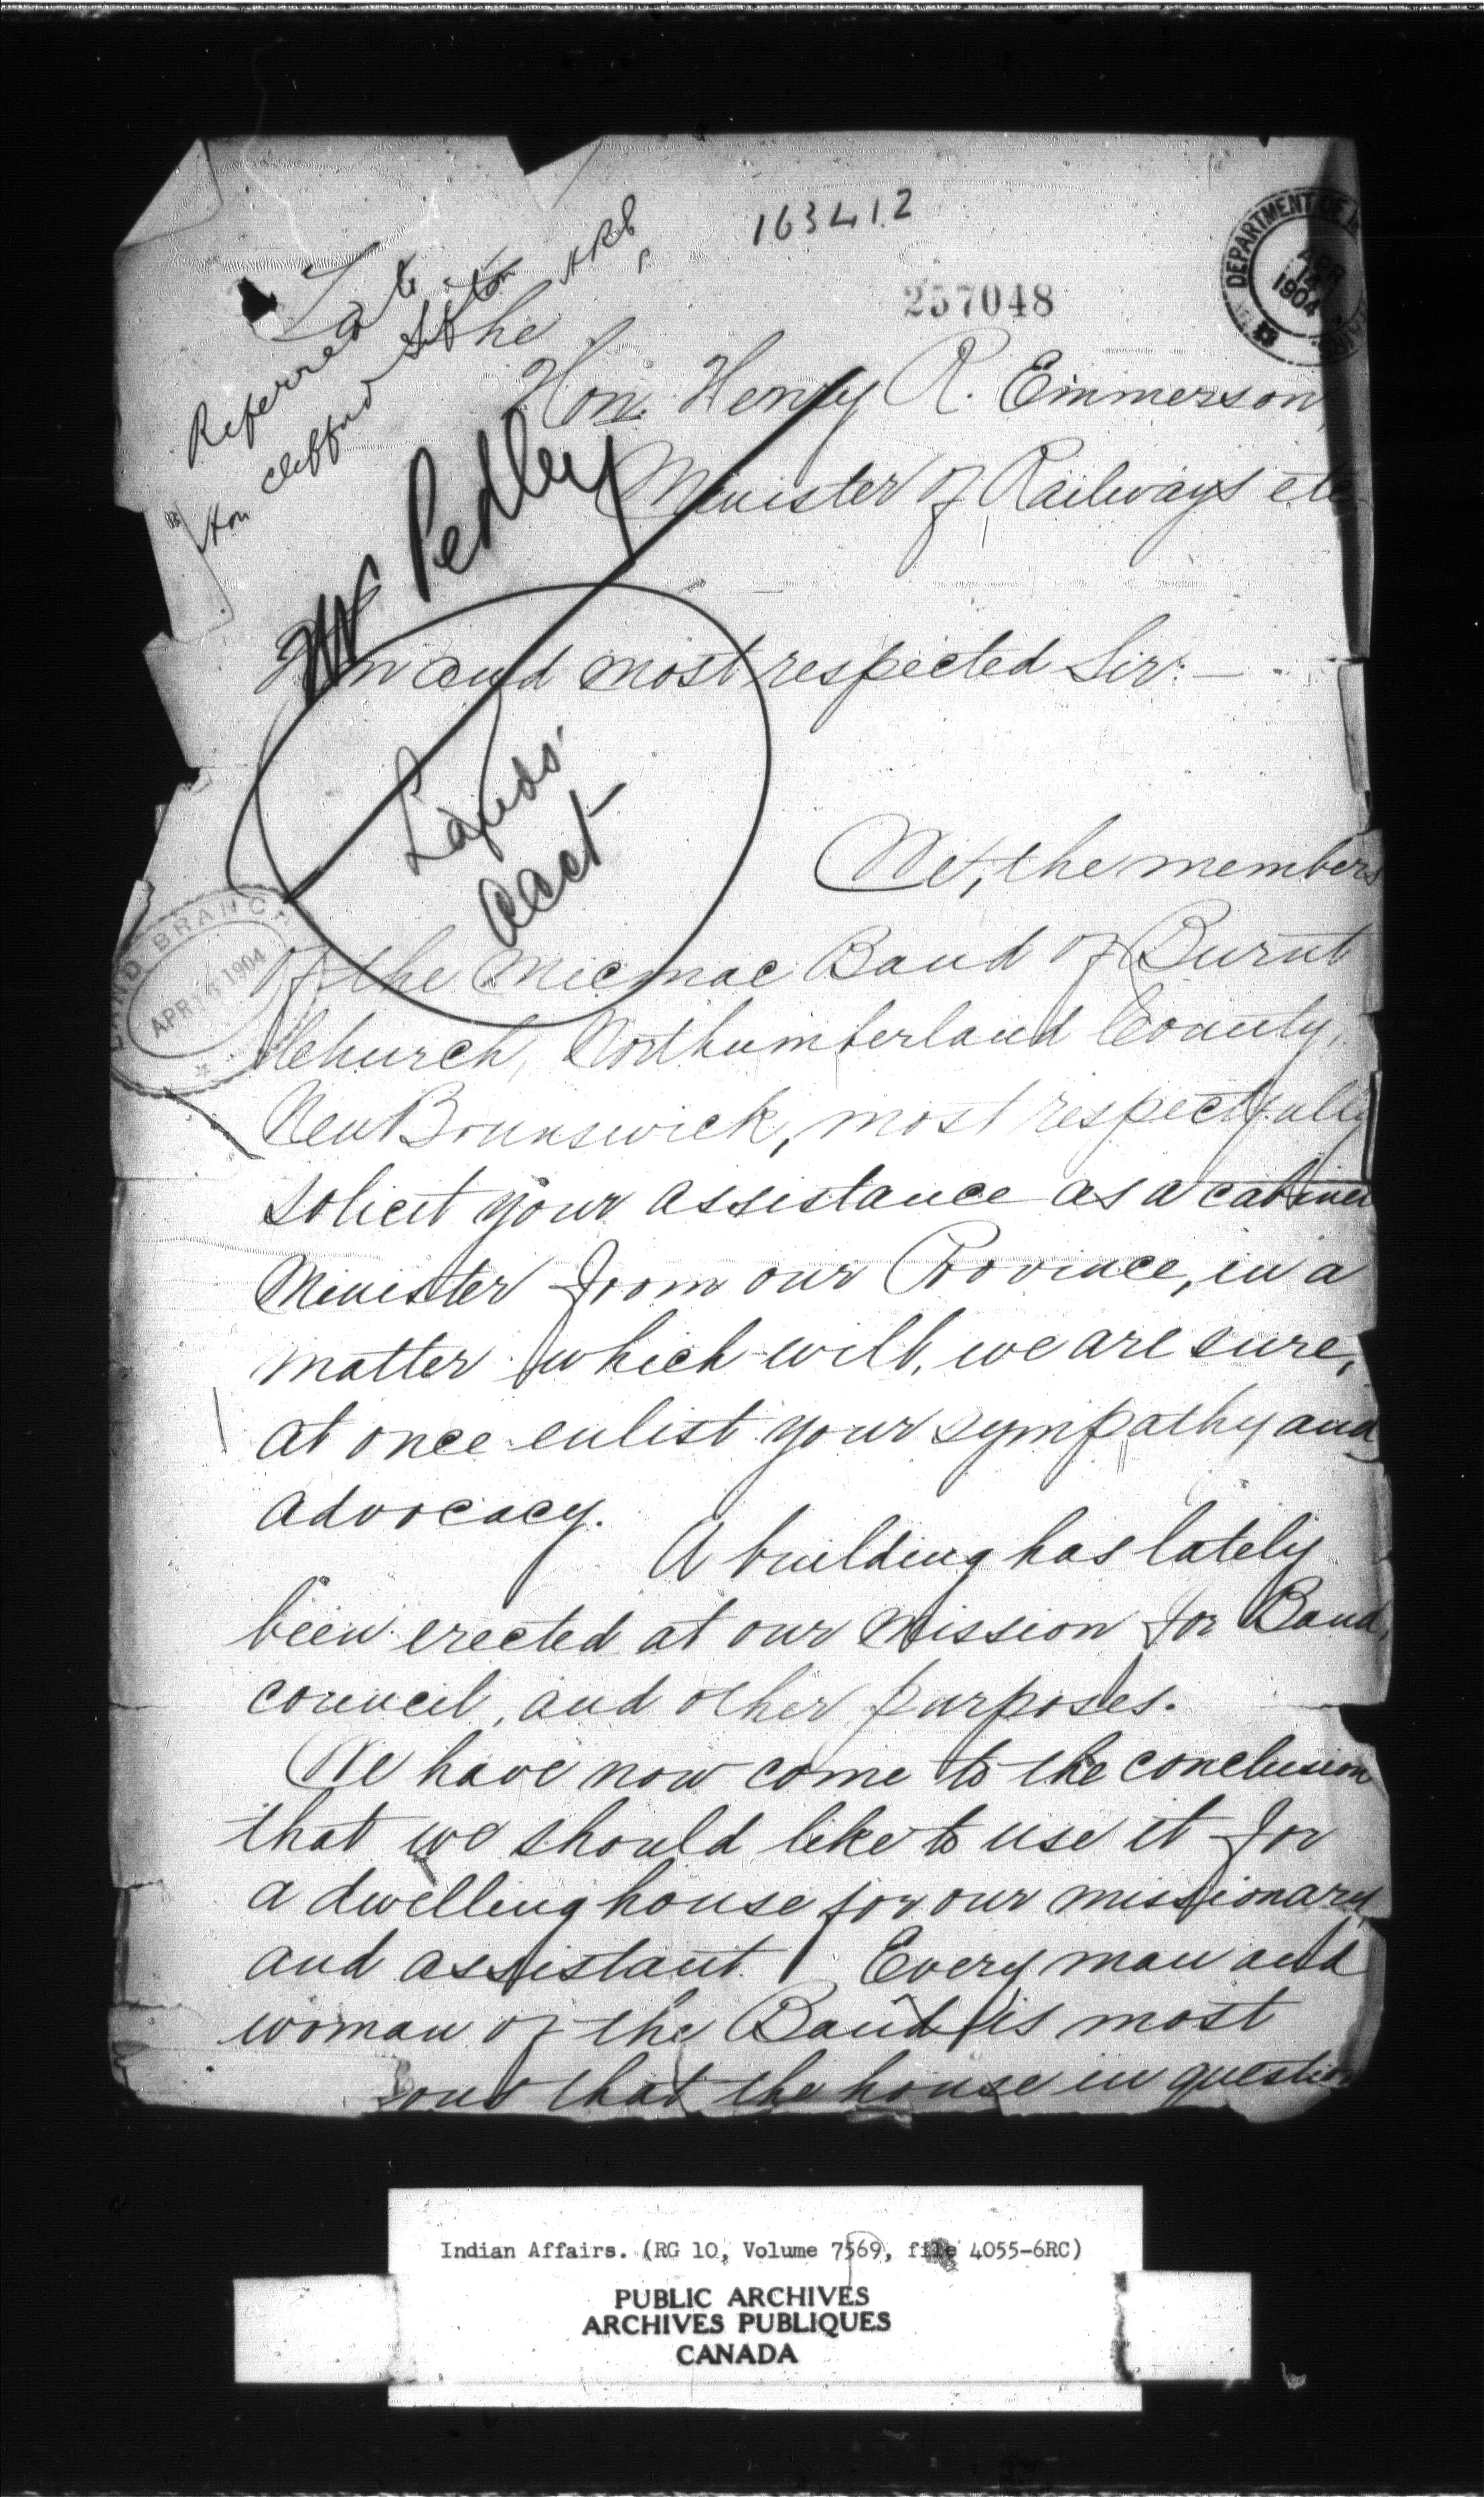 163412
257048
DEPARTMENT OF
APR
14
1904
Referred to
Hon Clifford Sifton HRE
To the
Hon. Henry R. Emmerson,
Minister of Railways etc
Mr Pedley
Hon and most respected Sir:—
Lands
acct
We, the members
LAND BRANCH
APR 14 1904
of the Micmac Band of Burnt
Church, Northumberland County,
New Brunswick, most respectfully
solicit your assistance as a cabinet
Minister from our Province, in a
matter which will, we are sure,
at once enlist your sympathy and
advocacy.
A building has lately
been erected at our Mission for Band,
council, and other purposes.
We have now come to the conclusion
that we should like to use it for
a dwelling house for our missionary
and assistant. Every man and
woman of the Band is most
that the house in question
Indian Affairs. (RG 10, Volume 7569, file 4055-6RC)
PUBLIC ARCHIVES
ARCHIVES PUBLIQUES
CANADA